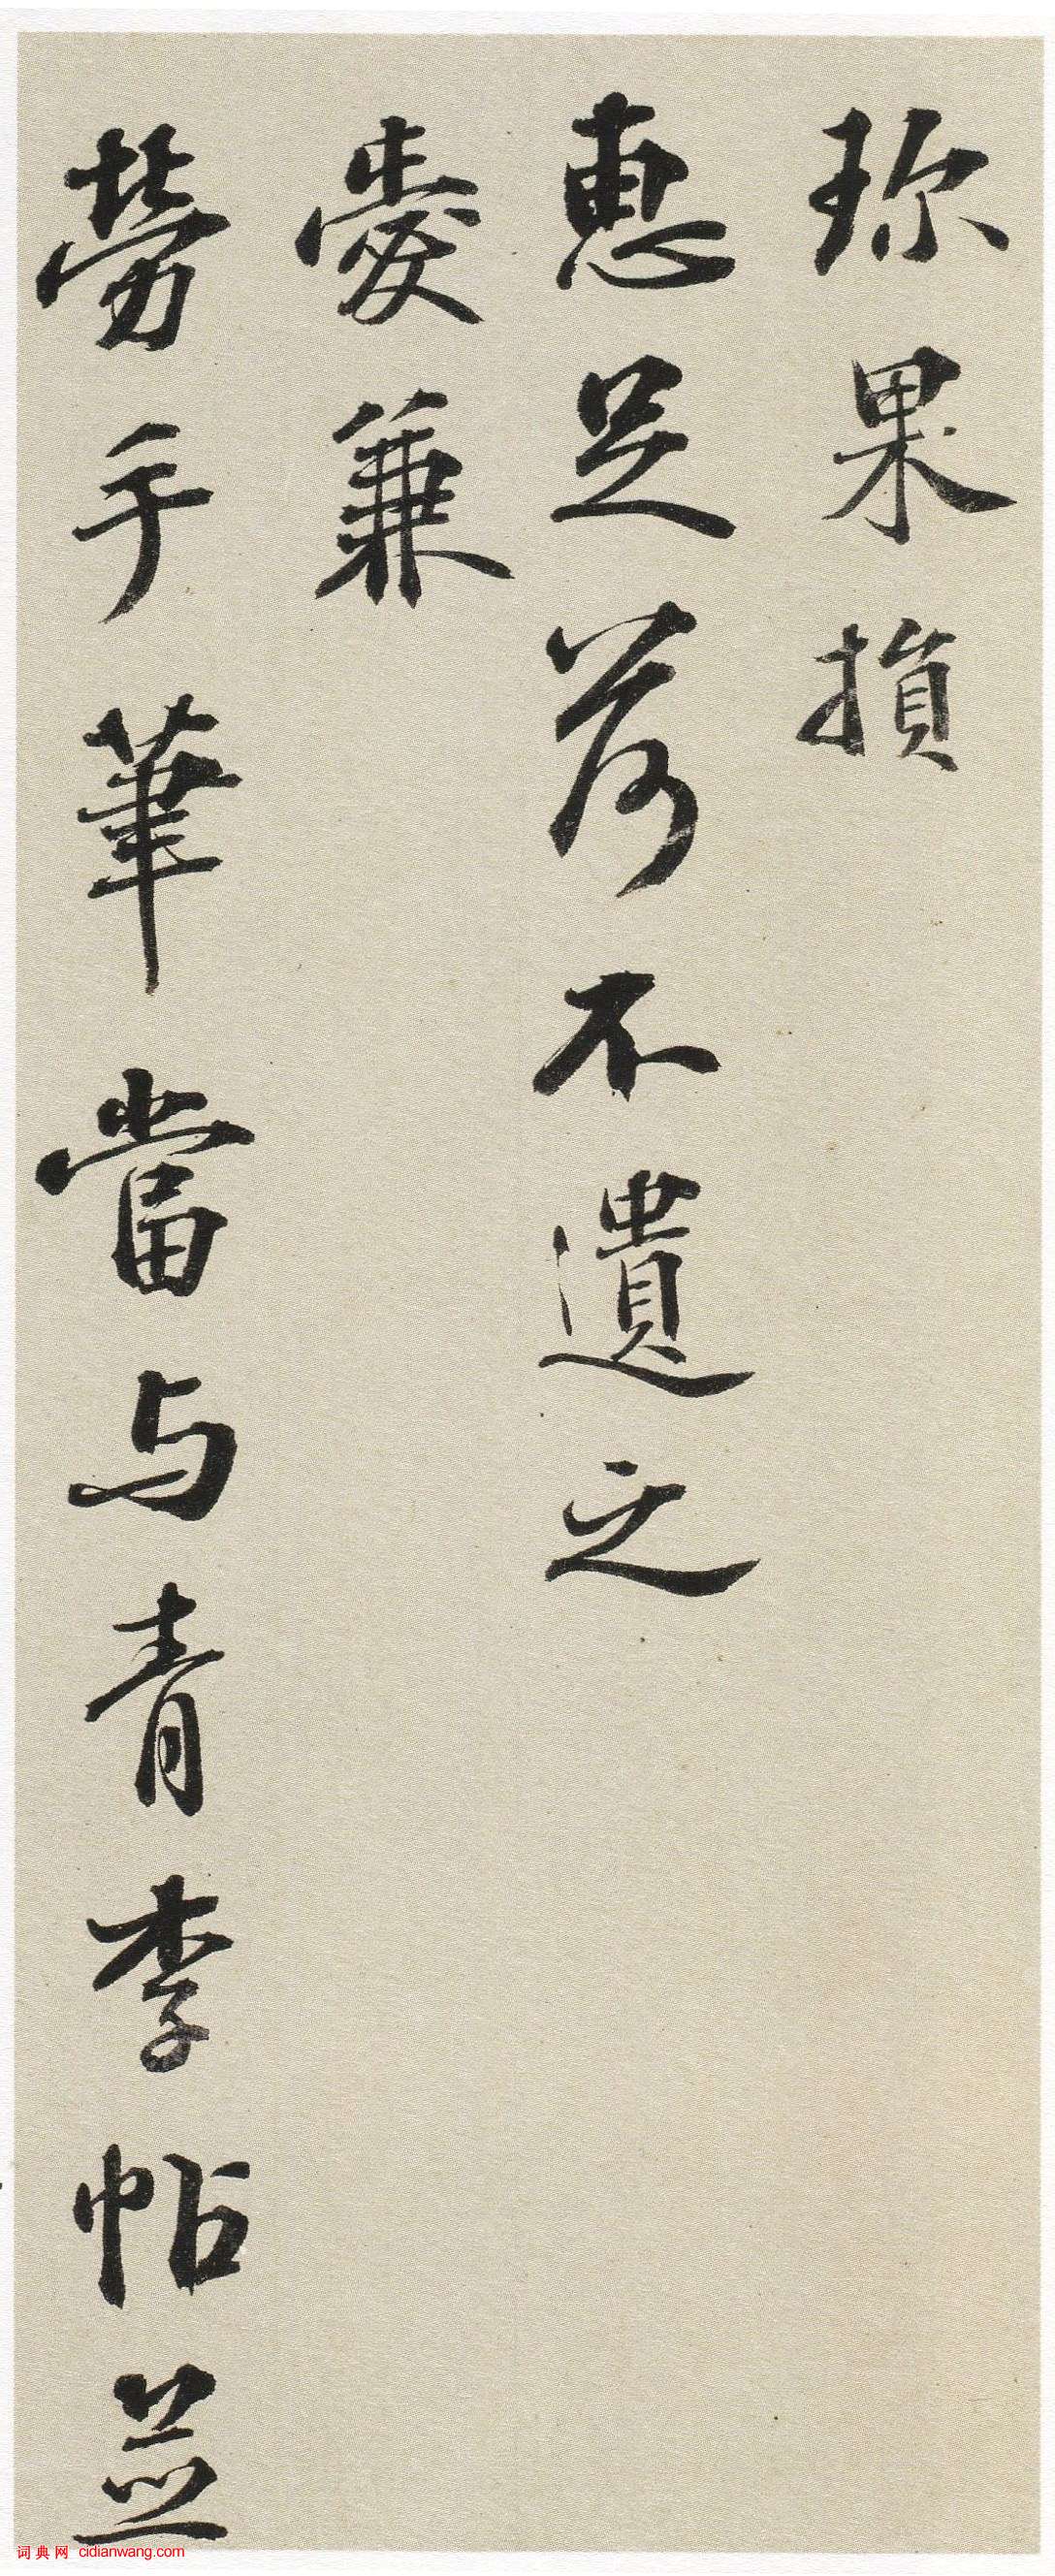 珎果損
惠足荷不遺之
愛兼
勞手筆當与青李帖並
词典网 cidianwang.com